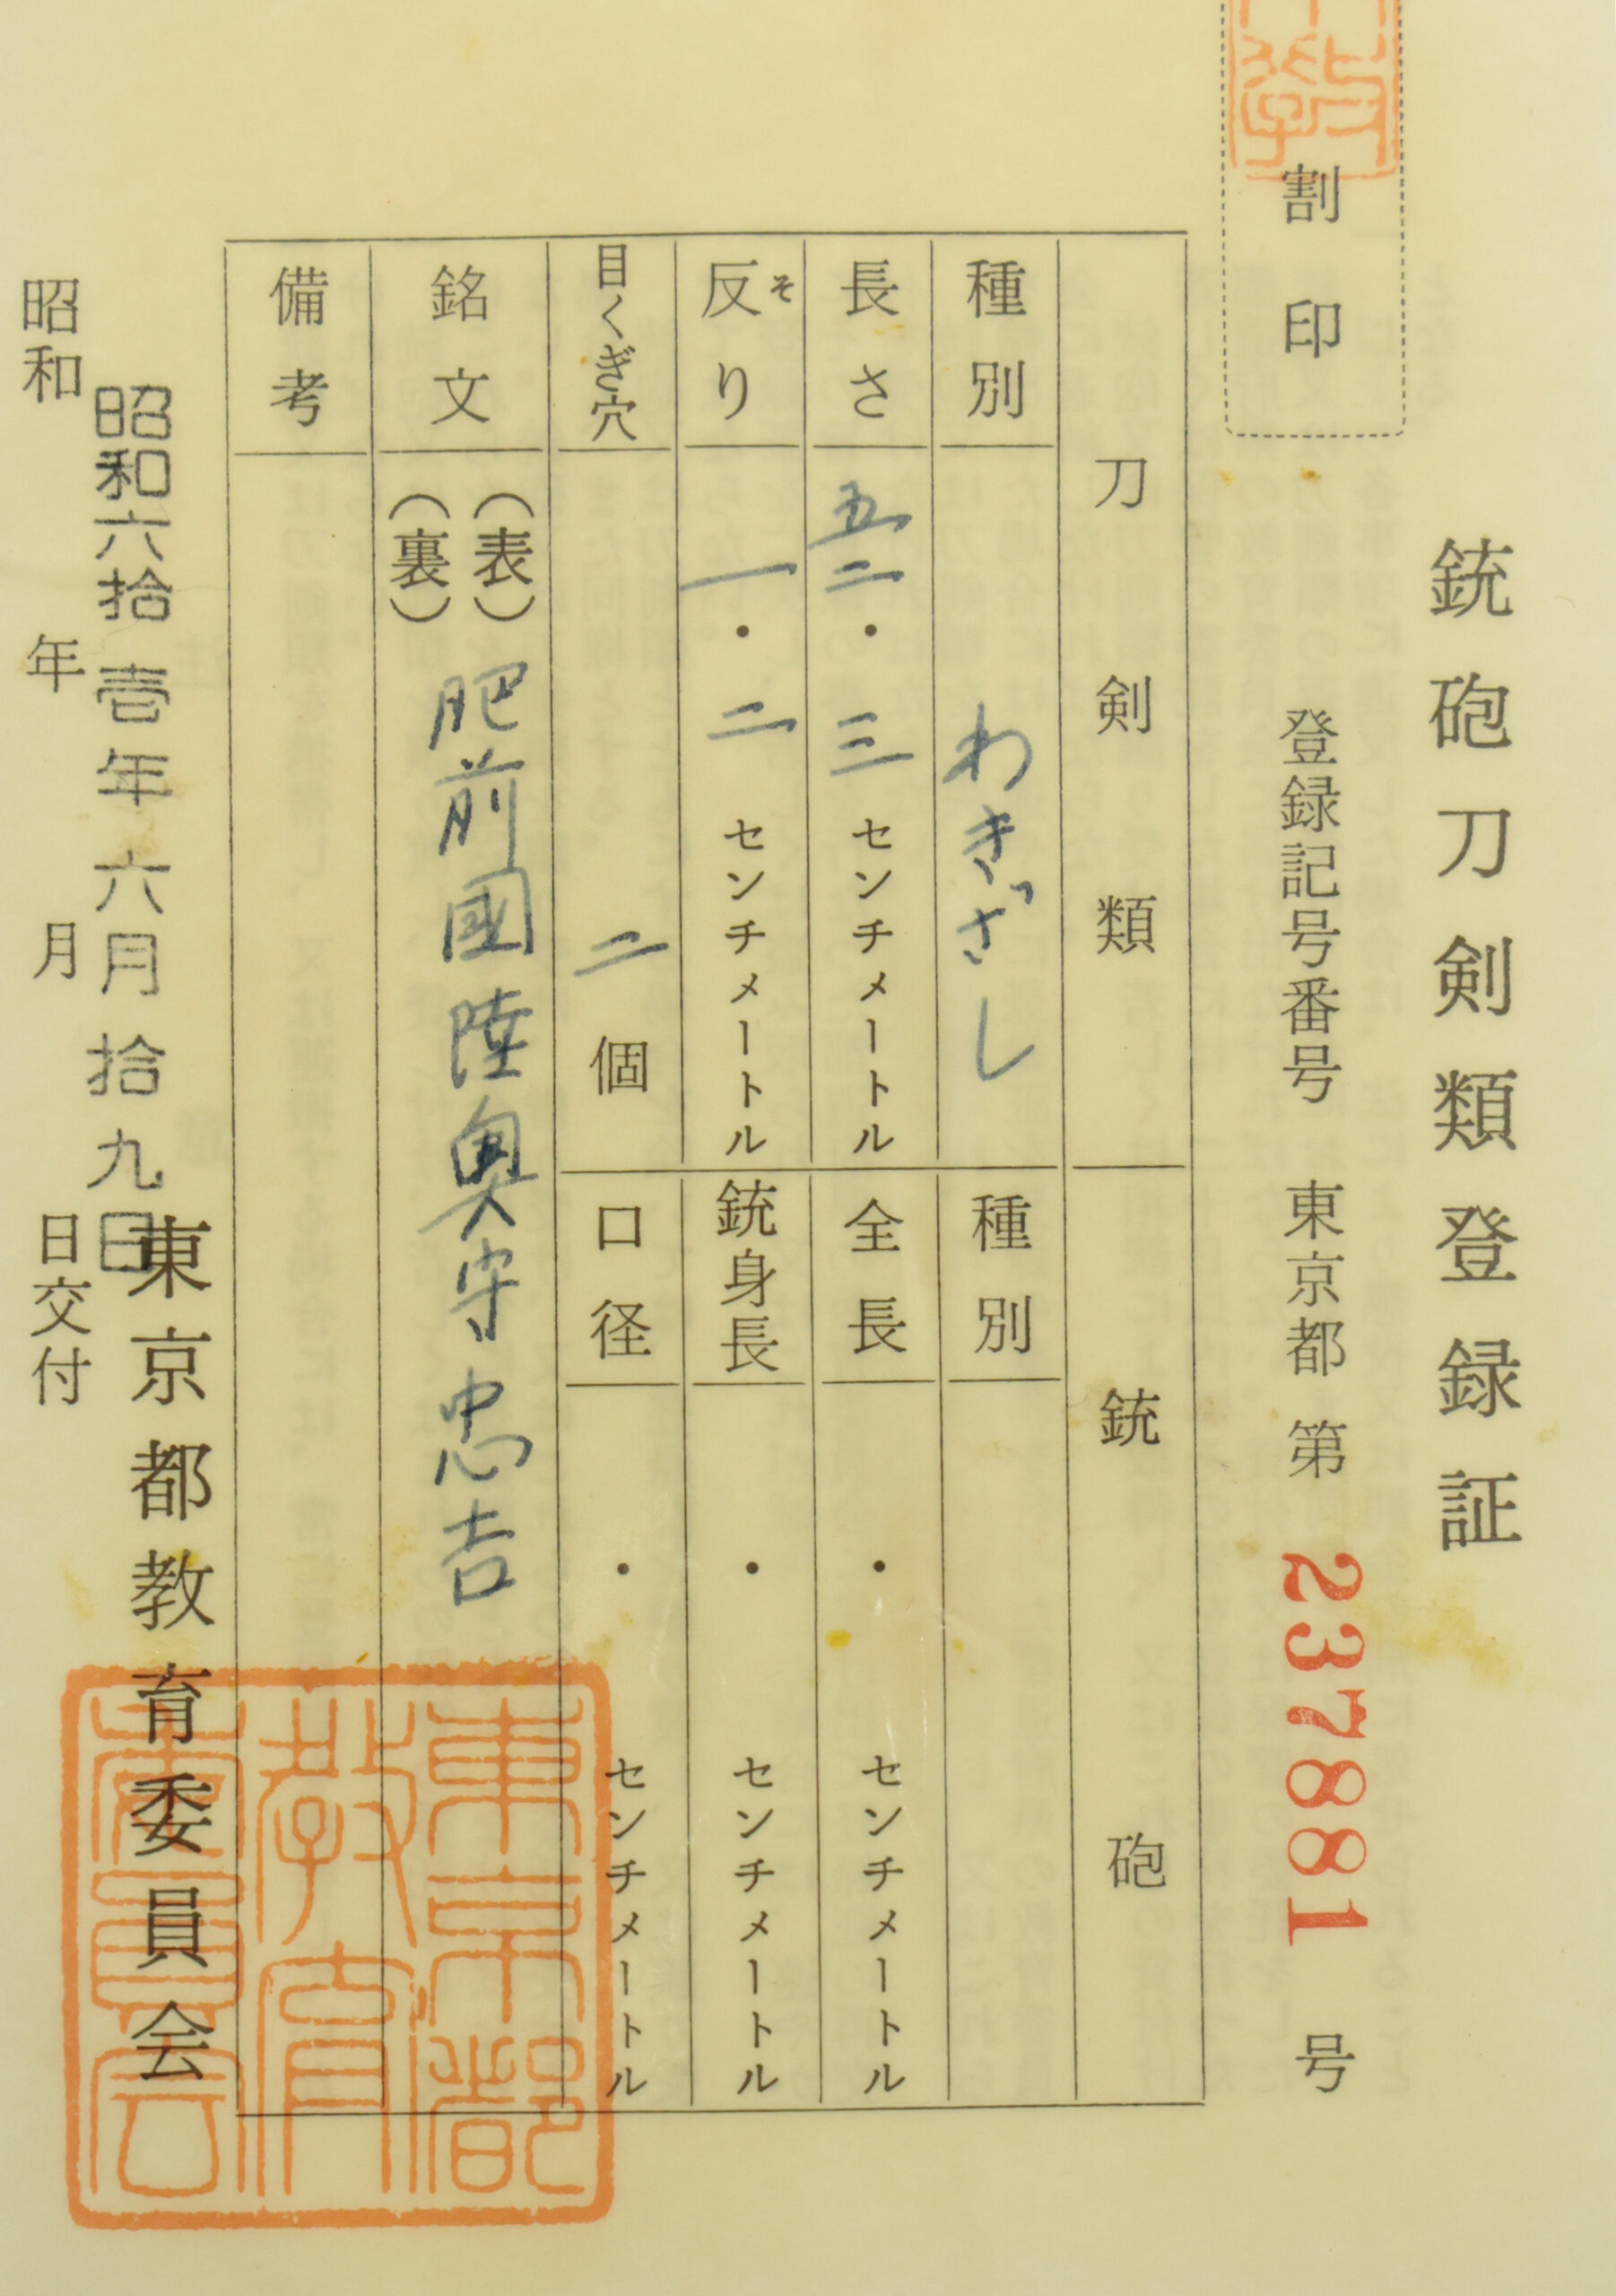 銃砲刀剣類登録証
割印
登録記号番号 東京都 第 237881 号
刀剣類
銃砲
種別 わきざし
種別
長さ 五二・三 センチメートル
全長 ・ センチメートル
反り そ 一・二 センチメートル
銃身長 ・ センチメートル
目くぎ穴 二 個
口径 ・ センチメートル
銘文 (表) 肥前國陸奥守忠吉
(裏)
備考
東京都教育委員会
昭和六拾壱年六月拾九日
昭和 年 月 日交付
東京都教育委員会